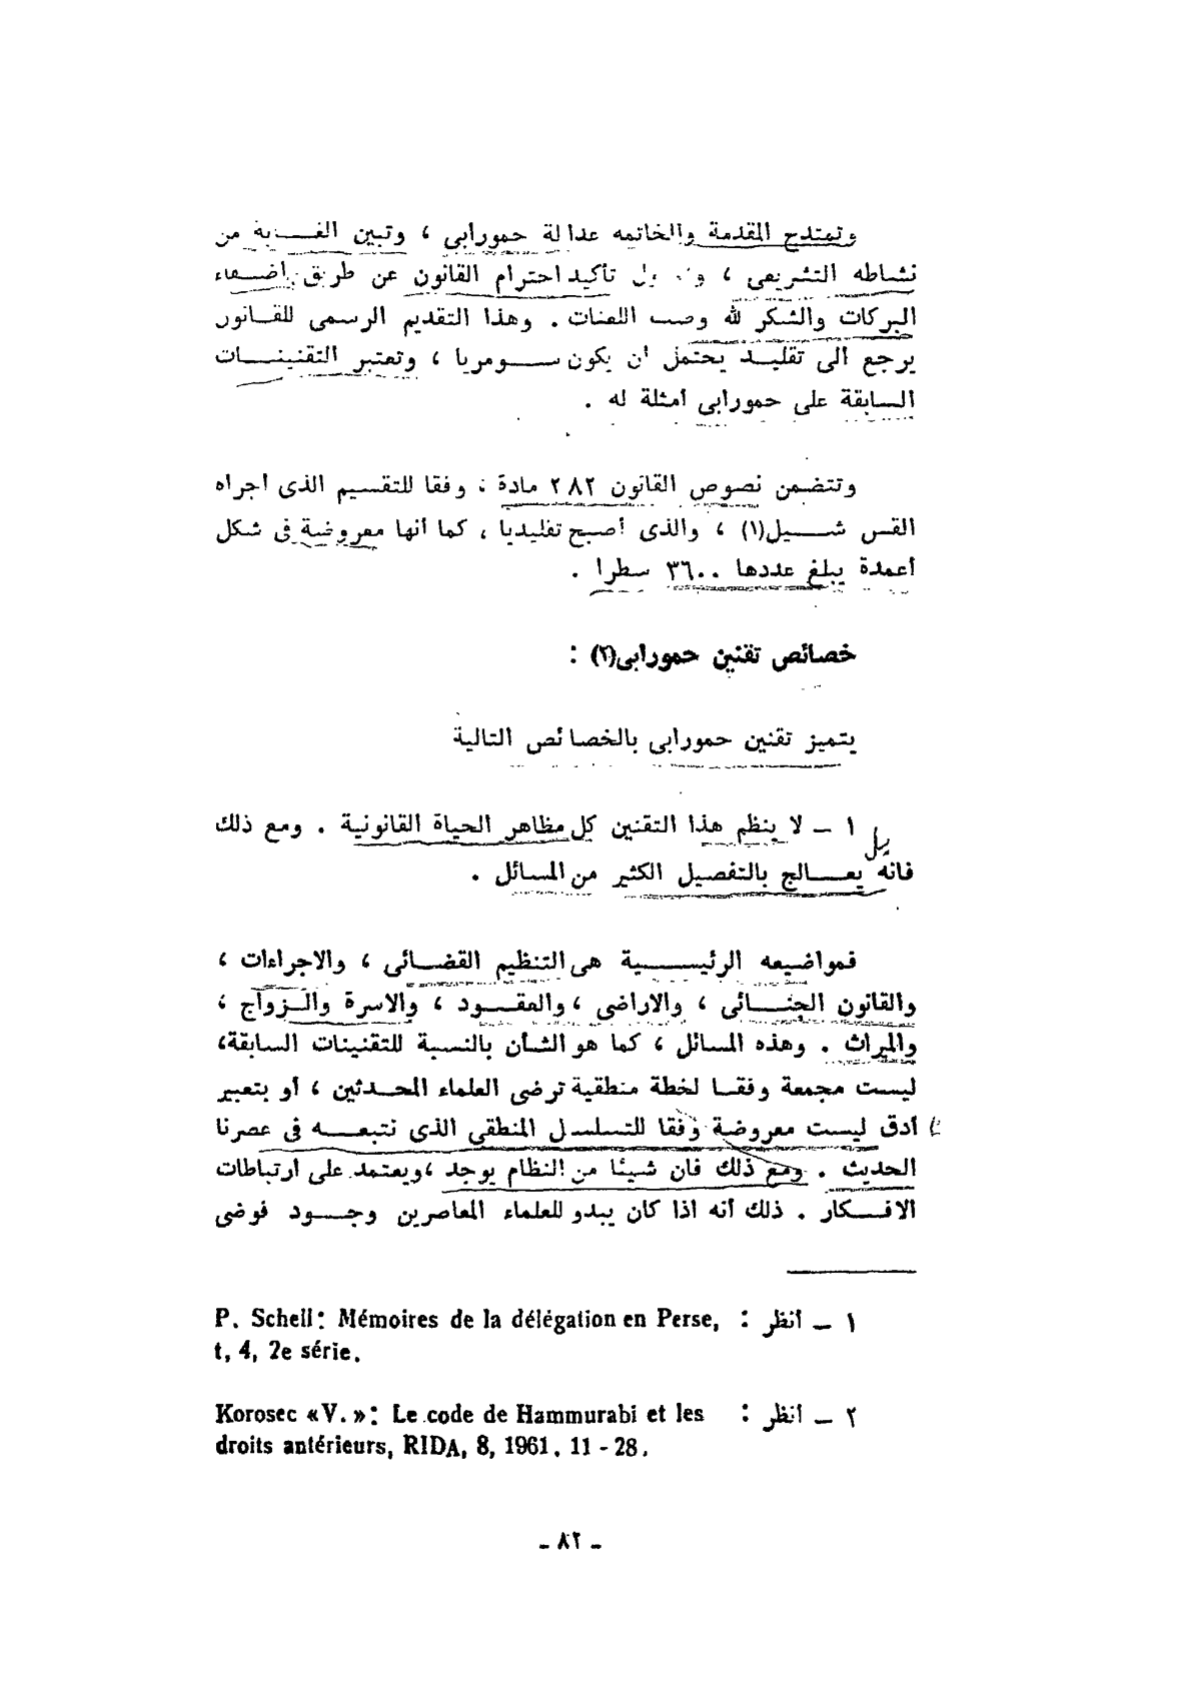 وتمتدح المقدمة والخاتمه عدالة حمورابى ، وتبين الغــاية من
نشاطه التشريعى ، تأكيد احترام القانون عن طريق اضــفاء
البركات والشكر لله وصب اللعنات . وهذا التقديم الرسمى للقــانون
يرجع الى تقليــد يحتمل ان يكون ســومريا ، وتعتبر التقنينــات
السابقة على حمورابى أمثلة له .
وتتضمن نصوص القانون ٢٨٢ مادة ، وفقا للتقسيم الذى اجراه
القس شــيل(١) ، والذى أصبح تقليديا ، كما أنها معروضة فى شكل
أعمدة يبلغ عددها ٣٦٠٠ سطرا .
خصائص تقنين حمورابى(٢) :
يتميز تقنين حمورابى بالخصائص التالية
١ – لا ينظم هذا التقنين كل مظاهر الحياة القانونية . ومع ذلك
فانه يعــالج بالتفصيل الكثير من المسائل .
فمواضيعه الرئيســية هى التنظيم القضــائى ، والاجراءات ،
والقانون الجنــائى ، والاراضى ، والعقــود ، والاسرة والــزواج ،
والميراث . وهذه المسائل ، كما هو الشأن بالنسبة للتقنينات السابقة،
ليست مجمعة وفقــا لخطة منطقية ترضى العلماء المحــدثين ، أو بتعبير
أدق ليست معروضة وفقا للتسلسل المنطقى الذى نتبعــه فى عصرنا
الحديث . ومع ذلك فان شيئا من النظام يوجد ، ويعتمد على ارتباطات
الافــكار . ذلك أنه اذا كان يبدو للعلماء المعاصرين وجــود فوضى
١ – أنظر : P. Scheil: Mémoires de la délégation en Perse,
t, 4, 2e série.
٢ – انظر : Korosec «V.»: Le code de Hammurabi et les
droits antérieurs, RIDA, 8, 1961. 11 - 28.
- ٨٢ -